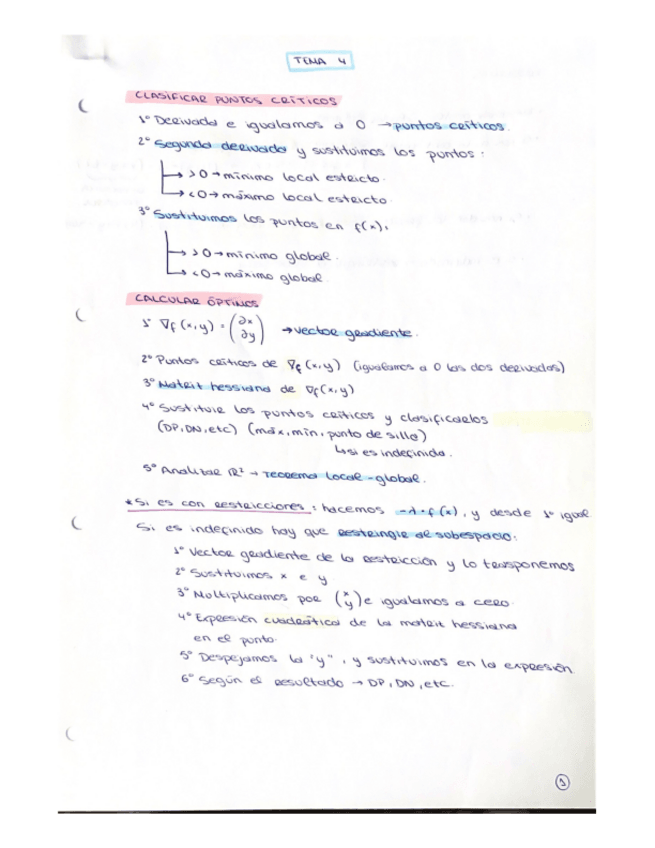 TEMA 4
CLASIFICAR PUNTOS CRÍTICOS
1º Derivada e igualamos a 0 → puntos críticos.
2º Segunda derivada y sustituimos los puntos.
→ >0 → mínimo local estricto.
→ <0 → máximo local estricto.
3º Sustituimos los puntos en f(x).
→ >0 → mínimo global.
→ <0 → máximo global.
CALCULAR ÓPTIMOS
1º ∇f (x,y) = (∂x ∂y) → vector gradiente.
2º Puntos críticos de ∇f (x,y) (igualamos a 0 las dos derivadas)
3º Matriz hessiana de ∇f(x,y)
4º Sustituir los puntos críticos y clasificarlos
(DP, DN, etc) (máx, mín, punto de silla)
↳ si es indefinida.
5º Analizar R² → Teorema local-global.
* Si es con restricciones: hacemos -λ·f(x), y desde 1º igual
Si es indefinido hay que restringir al subespacio:
1º Vector gradiente de la restricción y lo trasponemos
2º Sustituimos x e y
3º Multiplicamos por (x y) e igualamos a cero.
4º Expresión cuadrática de la matriz hessiana
en el punto.
5º Despejamos la "y", y sustituimos en la expresión.
6º Según el resultado → DP, DN, etc.
1